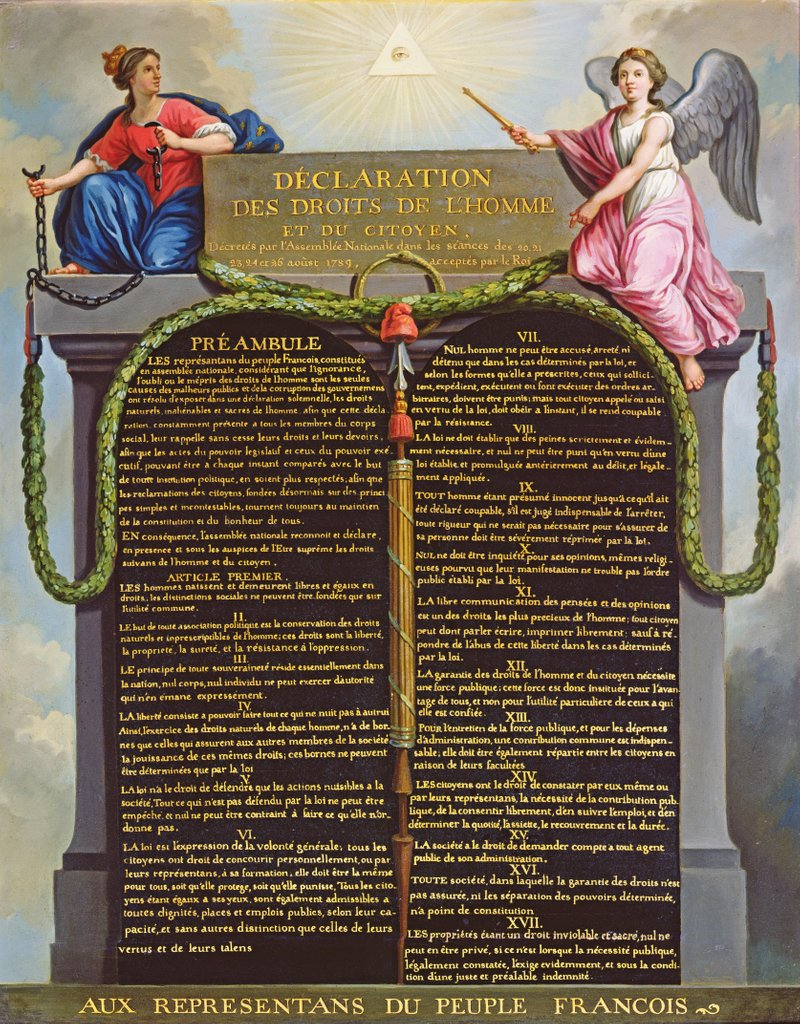 DÉCLARATION
DES DROITS DE L'HOMME
ET DU CITOYEN,
Décrétés par l'Assemblée Nationale dans les séances des 20.21
23.24 et 26 août 1789, acceptés par le Roi
PRÉAMBULE
LES représantans du peuple Francois, constitués
en assemblée nationale, considérant que l'ignorance,
l'oubli ou le mépris des droits de l'homme sont les seules
causes des malheurs publics et de la corruption des gouvernemens
ont résolu d'exposer dans une déclaration solemnelle, les droits
naturels, inaliénables et sacrés de l'homme, afin que cette décla
ration, constamment présente a tous les membres du corps
social, leur rappelle sans cesse leurs droits et leurs devoirs,
afin que les actes du pouvoir legislatif et ceux du pouvoir exé-
cutif, pouvant être a chaque instant comparés avec le but
de toute institution politique, en soient plus respectés; afin que
les reclamations des citoyens, fondées désormais sur des princi
pes simples et incontestables, tournent toujours au maintien
de la constitution et du bonheur de tous.
EN conséquence, l'assemblée nationale reconnoit et déclare,
en presence et sous les auspices de l'Etre suprême les droits
suivans de l'homme et du citoyen.
ARTICLE PREMIER.
LES hommes naissent et demeurent libres et égaux en
droits, les distinctions sociales ne peuvent être fondées que sur
l'utilité commune.
II.
LE but de toute association politique est la conservation des droits
naturels et inprescriptibles de l'homme; ces droits sont la liberté,
la propriété, la sureté, et la résistance à l'oppression.
III.
LE principe de toute souveraineté réside essentiellement dans
la nation, nul corps, nul individu ne peut exercer d'autorité
qui n'en émane expressément.
IV.
LA liberté consiste a pouvoir faire tout ce qui ne nuit pas à autrui
Ainsi, l'exercice des droits naturels de chaque homme, n'a de bor-
nes que celles qui assurent aux autres membres de la société
la jouissance de ces mêmes droits; ces bornes ne peuvent
être déterminées que par la loi
V.
LA loi n'a le droit de défendre que les actions nuisibles a la
société. Tout ce qui n'est pas défendu par la loi ne peut être
empêché, et nul ne peut être contraint à faire ce qu'elle n'or-
donne pas.
VI.
LA loi est l'expression de la volonté générale; tous les
citoyens ont droit de concourir personnellement, ou par
leurs représentans, à sa formation; elle doit être la même
pour tous, soit qu'elle protege, soit qu'elle punisse, Tous les cito-
yens étant égaux a ses yeux, sont également admissibles a
toutes dignités, places et emplois publics, selon leur ca-
pacité, et sans autres distinction que celles de leurs
vertus et de leurs talens
VII.
NUL homme ne peut être accusé, arreté, ni
détenu que dans les cas déterminés par la loi, et
selon les formes qu'elle a prescrites, ceux qui sollici-
tent, expédient, exécutent ou font exécuter des ordres ar-
bitraires, doivent être punis; mais tout citoyen appelé ou saisi
en vertu de la loi, doit obéir a l'instant, il se rend coupable
par la résistance.
VIII.
LA loi ne doit établir que des peines strictement et évidem-
ment nécessaire, et nul ne peut être puni qu'en vertu d'une
loi établie et promulguée antérierement au délit, et légale-
ment appliquée.
IX.
TOUT homme étant présumé innocent jusqu'a ce qu'il ait
été déclaré coupable, s'il est jugé indispensable de l'arrêter,
toute rigueur qui ne serait pas nécessaire pour s'assurer de
sa personne doit être sévèrement réprimée par la loi.
X.
NUL ne doit être inquiété pour ses opinions, mêmes religi-
euses pourvu que leur manifestation ne trouble pas l'ordre
public établi par la loi.
XI.
LA libre communication des pensées et des opinions
est un des droits les plus precieux de l'homme; tout citoyen
peut donc parler écrire, imprimer librement; sauf à ré-
pondre de l'abus de cette liberté dans les cas déterminés
par la loi.
XII.
LA garantie des droits de l'homme et du citoyen nécessite
une force publique; cette force est donc instituée pour l'avan-
tage de tous, et non pour l'utilité particuliere de ceux a qui
elle est confiée.
XIII.
Pour l'entretien de la force publique, et pour les dépenses
d'administration, une contribution commune est indispen-
sable; elle doit être également répartie entre les citoyens en
raison de leurs facultées
XIV.
LES citoyens ont le droit de constater par eux même ou
par leurs représentans, la nécessité de la contribution pub-
lique, de la consentir librement, d'en suivre l'emploi, et d'en
déterminer la quotité, l'assiette, le recouvrement et la durée.
XV.
LA société a le droit de demander compte a tout agent
public de son administration.
XVI.
TOUTE société, dans laquelle la garantie des droits n'est
pas assurée, ni les séparation des pouvoirs déterminée,
n'a point de constitution
XVII.
LES propriétés étant un droit inviolable et sacré, nul ne
peut en être privé, si ce n'est lorsque la nécessité publique,
légalement constatée, l'exige evidemment, et sous la condi-
tion d'une juste et préalable indemnité.
AUX REPRESENTANS DU PEUPLE FRANCOIS